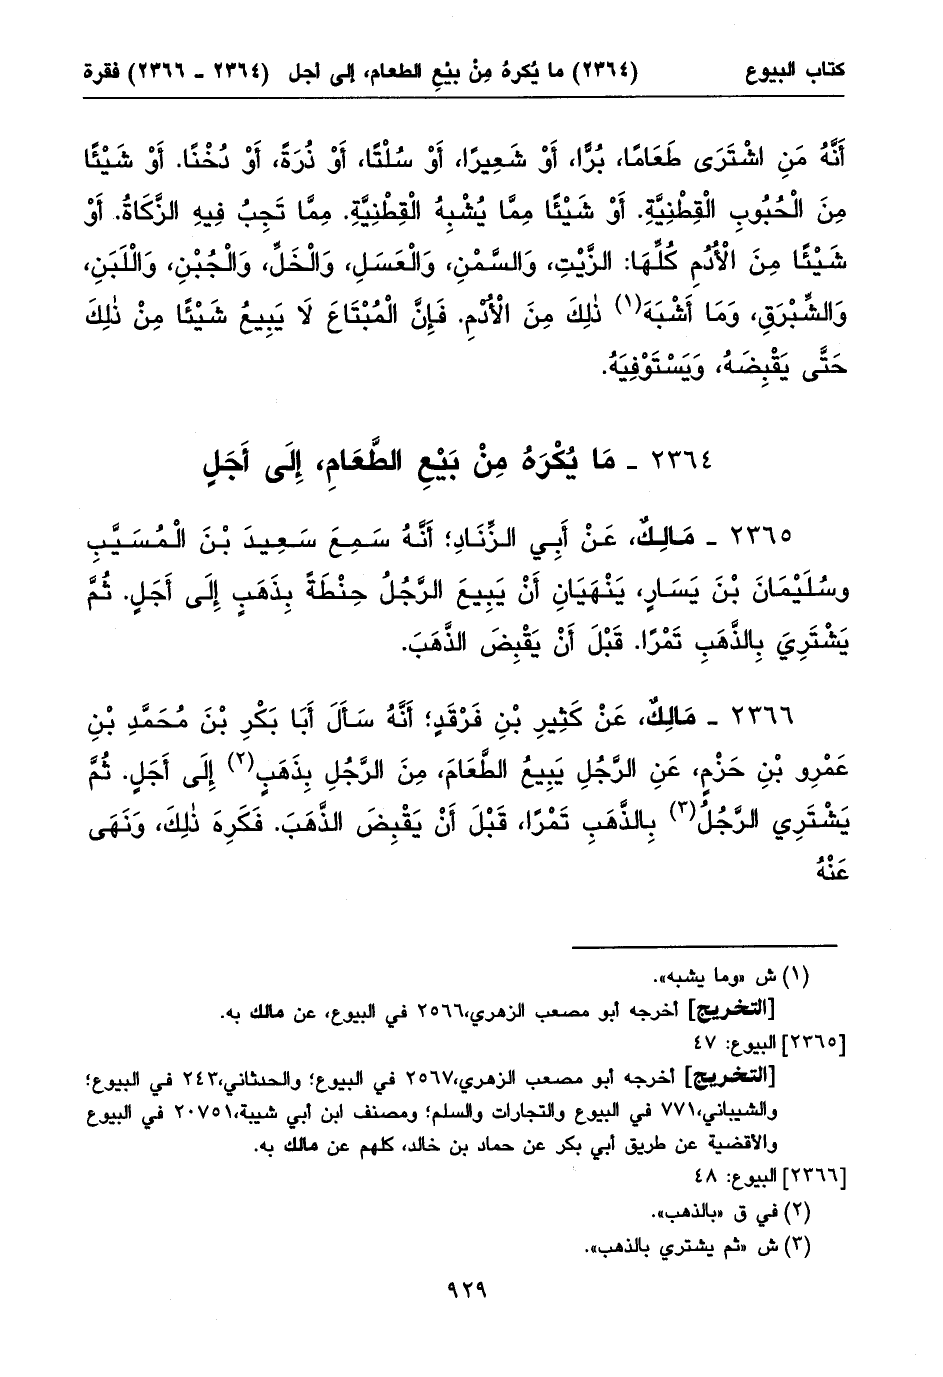 كتاب البيوع (٢٣٦٤) ما يُكرهُ مِنْ بيْعِ الطعام، إلى أجل (٢٣٦٤ - ٢٣٦٦) فقرة
أَنَّهُ مَنِ اشْتَرَى طَعَامًا، بُرًّا، أَوْ شَعِيرًا، أَوْ سُلْتًا، أَوْ ذُرَةً، أَوْ دُخْنًا. أَوْ شَيْئًا
مِنَ الْحُبُوبِ الْقِطْنِيَّةِ. أَوْ شَيْئًا مِمَّا يُشْبِهُ الْقِطْنِيَّةِ. مِمَّا تَجِبُ فِيهِ الزَّكَاةُ. أَوْ
شَيْئًا مِنَ الْأُدُمِ كُلِّهَا: الزَّيْتِ، وَالسَّمْنِ، وَالْعَسَلِ، وَالْخَلِّ، وَالْجُبْنِ، وَاللَّبَنِ،
وَالشِّبْرَقِ، وَمَا أَشْبَهَ(١) ذٰلِكَ مِنَ الْأُدْمِ. فَإِنَّ الْمُبْتَاعَ لَا يَبِيعُ شَيْئًا مِنْ ذٰلِكَ
حَتَّى يَقْبِضَهُ، وَيَسْتَوْفِيَهُ.
٢٣٦٤ - مَا يُكْرَهُ مِنْ بَيْعِ الطَّعَامِ، إِلَى أَجَلٍ
٢٣٦٥ - مَالِكٌ، عَنْ أَبِي الزِّنَادِ؛ أَنَّهُ سَمِعَ سَعِيدَ بْنَ الْمُسَيَّبِ
وسُلَيْمَانَ بْنَ يَسَارٍ، يَنْهَيَانِ أَنْ يَبِيعَ الرَّجُلُ حِنْطَةً بِذَهَبٍ إِلَى أَجَلٍ. ثُمَّ
يَشْتَرِيَ بِالذَّهَبِ تَمْرًا. قَبْلَ أَنْ يَقْبِضَ الذَّهَبَ.
٢٣٦٦ - مَالِكٌ، عَنْ كَثِيرِ بْنِ فَرْقَدٍ؛ أَنَّهُ سَأَلَ أَبَا بَكْرِ بْنَ مُحَمَّدِ بْنِ
عَمْرِو بْنِ حَزْمٍ، عَنِ الرَّجُلِ يَبِيعُ الطَّعَامَ، مِنَ الرَّجُلِ بِذَهَبٍ(٢) إِلَى أَجَلٍ. ثُمَّ
يَشْتَرِي الرَّجُلُ(٣) بِالذَّهَبِ تَمْرًا، قَبْلَ أَنْ يَقْبِضَ الذَّهَبَ. فَكَرِهَ ذٰلِكَ، وَنَهَى
عَنْهُ
(١) ش «وما يشبه».
[التخريج] أخرجه أبو مصعب الزهري،٢٥٦٦ في البيوع، عن مالك به.
[٢٣٦٥] البيوع: ٤٧
[التخريج] أخرجه أبو مصعب الزهري،٢٥٦٧ في البيوع؛ والحدثاني،٢٤٣ في البيوع؛
والشيباني،٧٧١ في البيوع والتجارات والسلم؛ ومصنف ابن أبي شيبة،٢٠٧٥١ في البيوع
والأقضية عن طريق أبي بكر عن حماد بن خالد، كلهم عن مالك به.
[٢٣٦٦] البيوع: ٤٨
(٢) في ق «بالذهب».
(٣) ش «ثم يشتري بالذهب».
٩٢٩